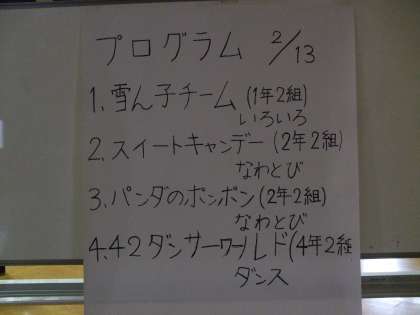 プログラム 2/13
1.雪ん子チーム(1年2組)
いろいろ
2.スイートキャンデー(2年2組)
なわとび
3.パンダのポンポン(2年2組)
なわとび
4.42ダンサーワールド(4年2組
ダンス